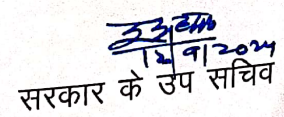 12/9/2024
सरकार के उप सचिव